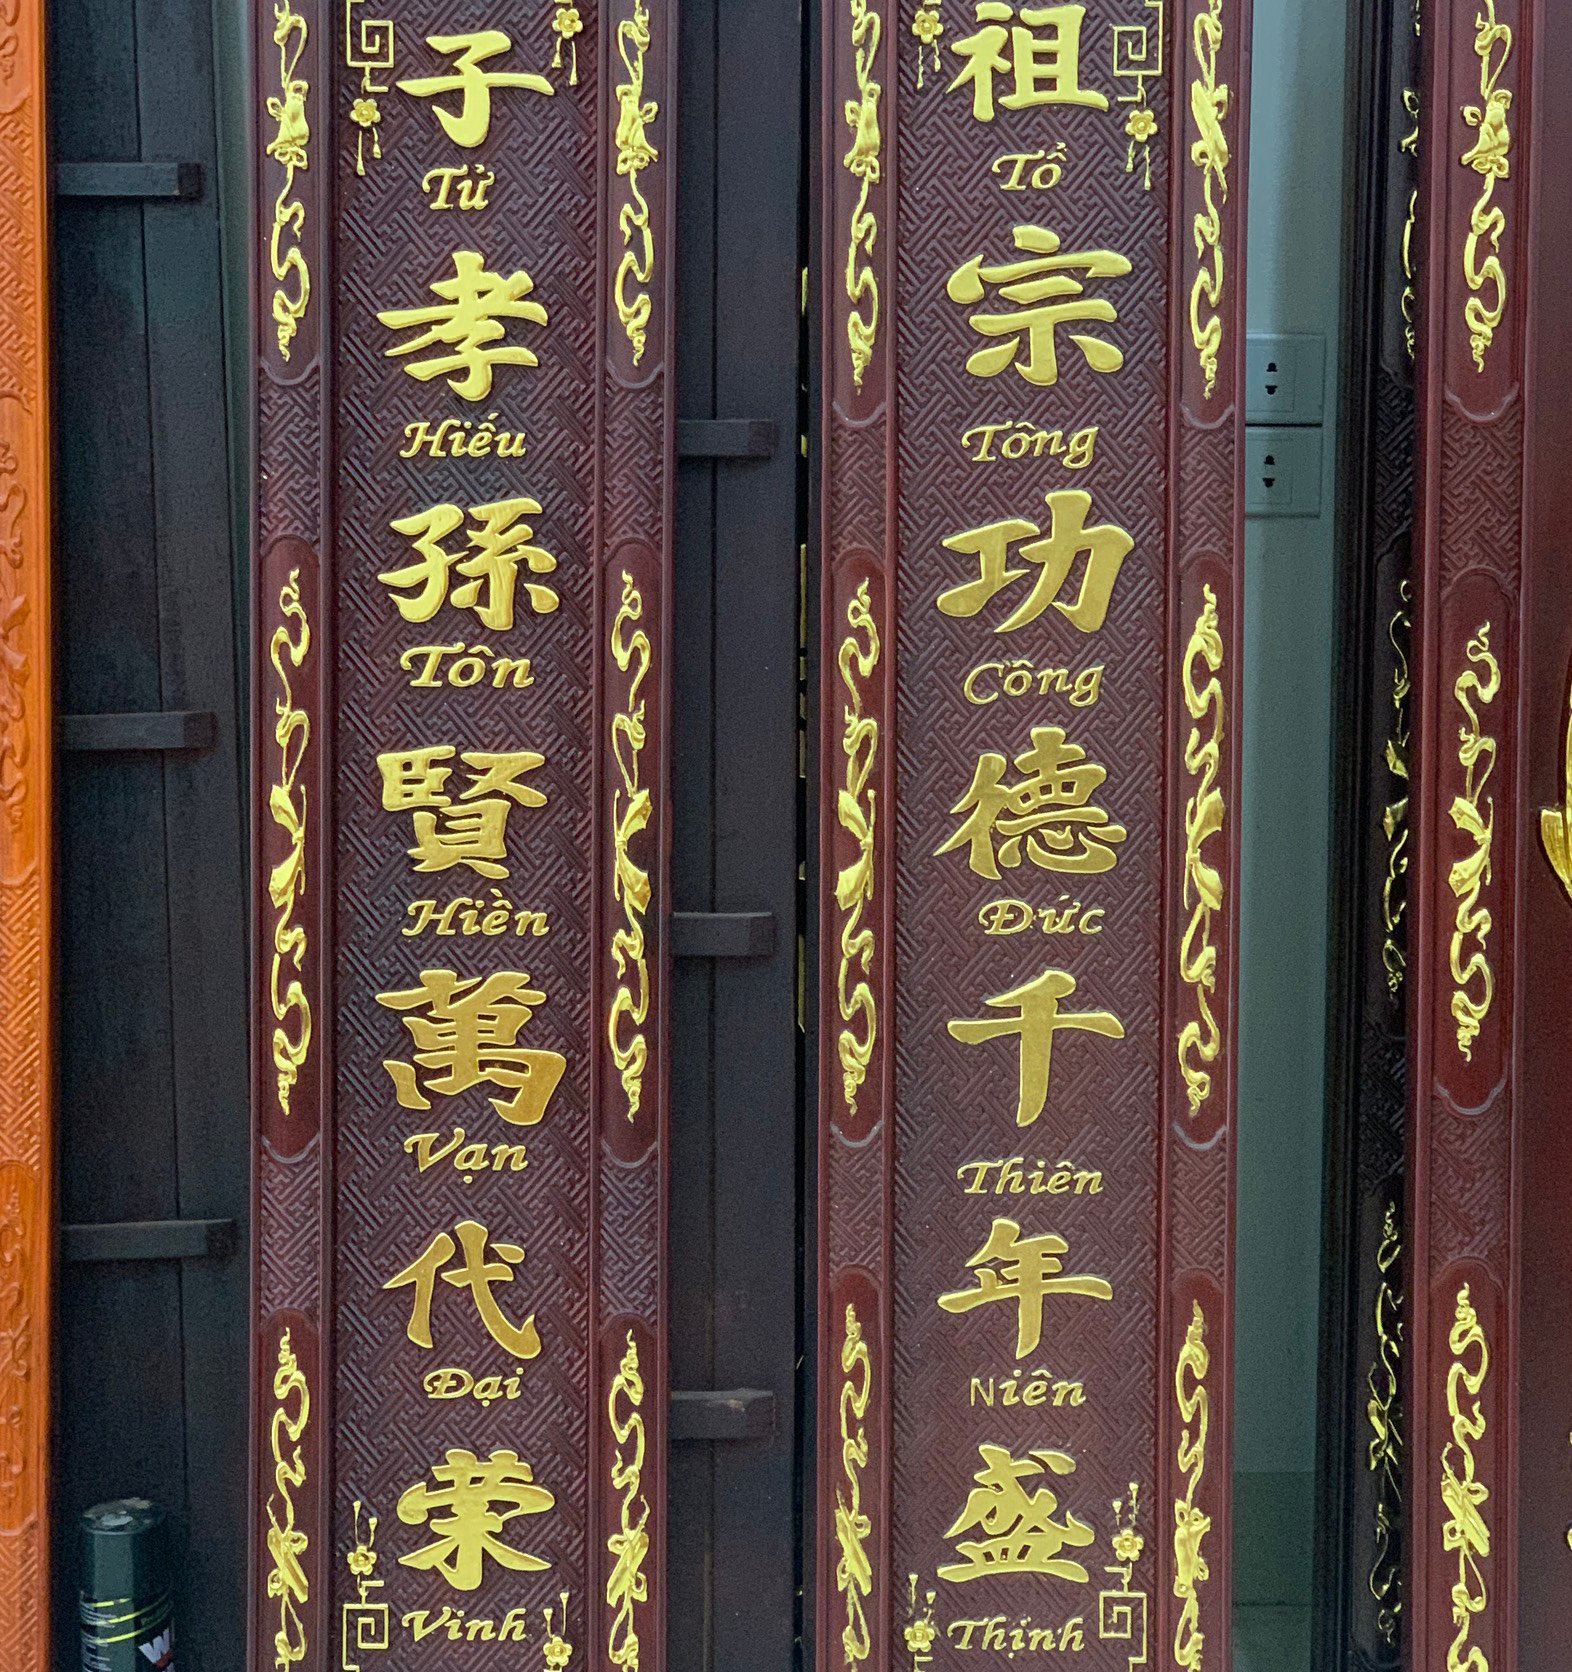 祖
Tổ
宗
Tông
功
Công
德
Đức
千
Thiên
年
Niên
盛
Thịnh
子
Tử
孝
Hiếu
孫
Tôn
賢
Hiền
萬
Vạn
代
Đại
荣
Vinh